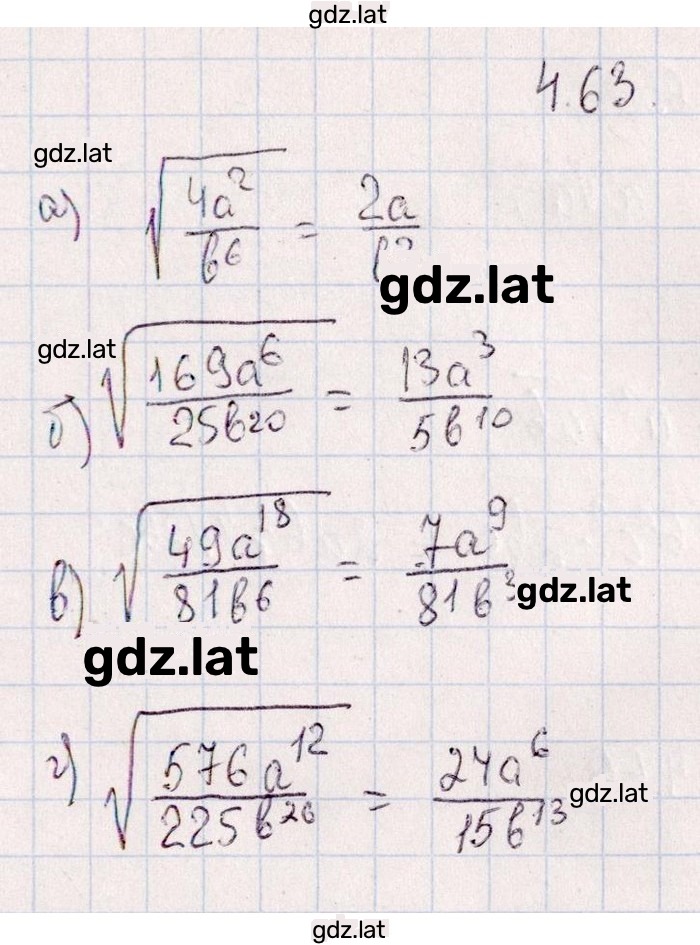 gdz.lat
4.63.
gdz.lat
а) √(4a²/b⁶) = 2a/b³
gdz.lat
gdz.lat
б) √(169a⁶/25b²⁰) = 13a³/5b¹⁰
в) √(49a¹⁸/81b⁶) = 7a⁹/81b³
gdz.lat
gdz.lat
г) √(576a¹²/225b²⁶) = 24a⁶/15b¹³
gdz.lat
gdz.lat